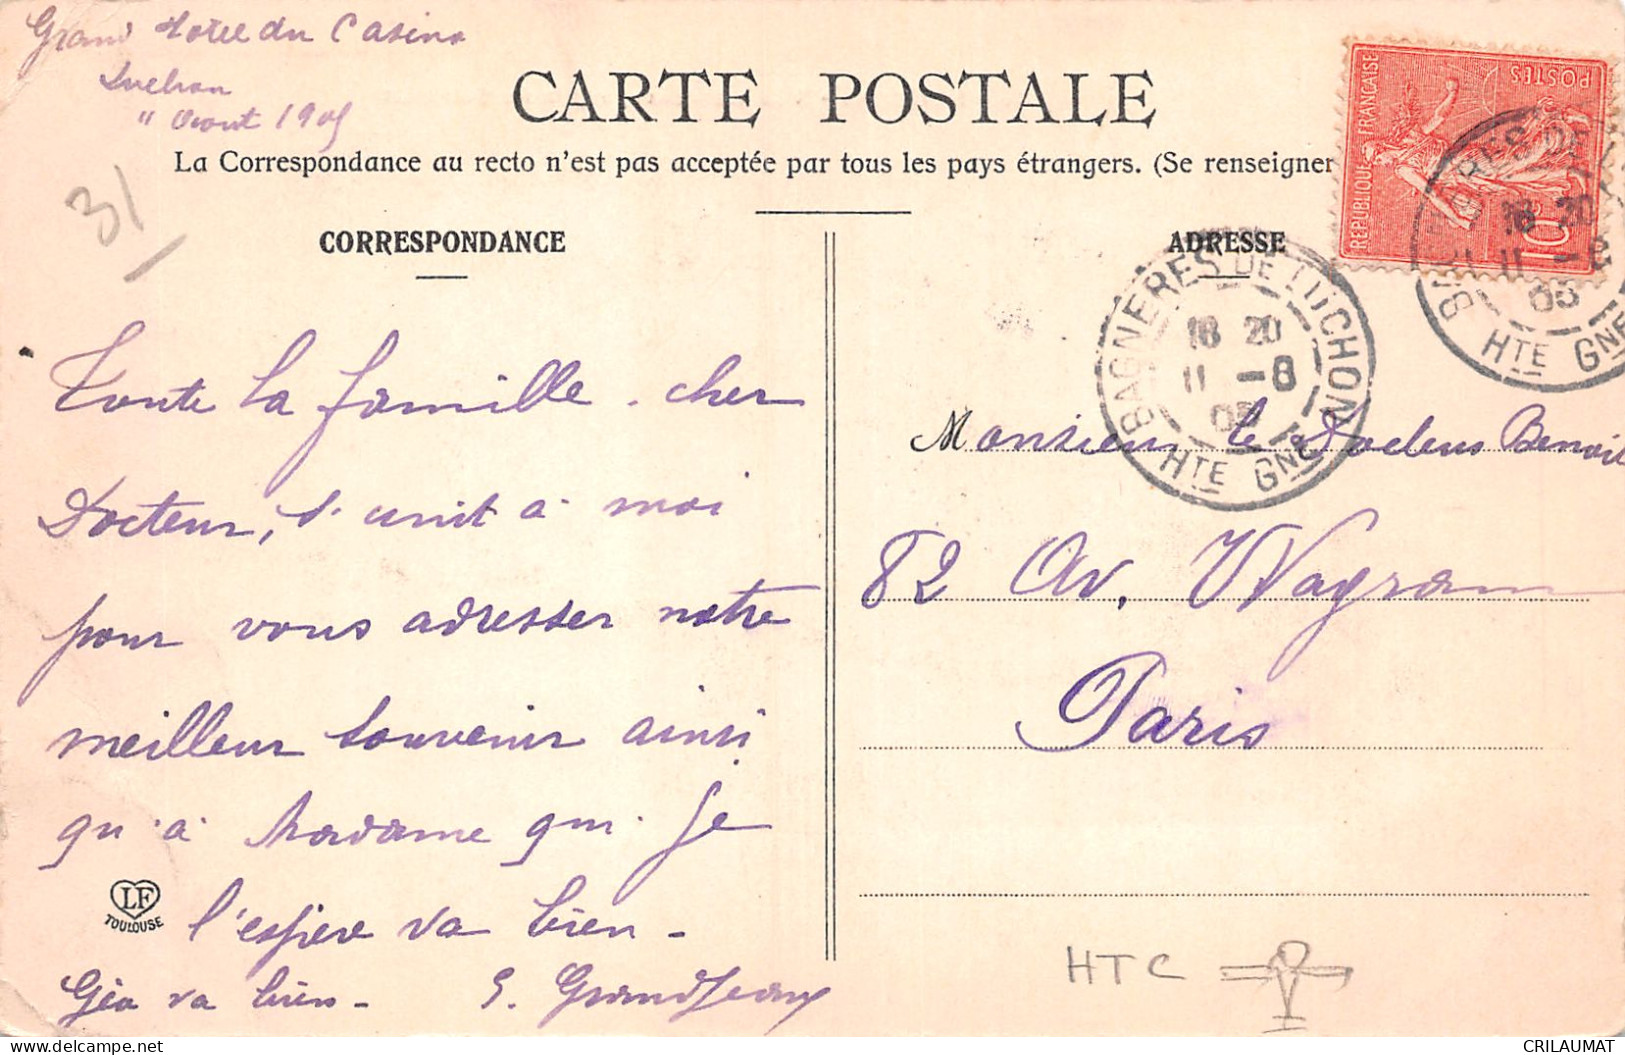 Grand Hotel du Casino
Luchon
11 Aout 1905
CARTE POSTALE
La Correspondance au recto n'est pas acceptée par tous les pays étrangers. (Se renseigner
31
CORRESPONDANCE
ADRESSE
REPUBLIQUE FRANÇAISE
POSTES
10
BAGNERES DE LUCHON
18 20
11 -8
05
HTE GNE
BAGNERES DE LUCHON
18 20
11 -8
05
HTE GNE
Toute la famille, cher
Docteur, s'unit à moi
pour vous adresser notre
meilleur souvenir ainsi
qu'à Madame qui je
l'espère va bien -
Géo va bien - G. Grandjean
LF
TOULOUSE
Monsieur le Docteur Benoit
82 Av. Wagram
Paris
HTC
CRILAUMAT